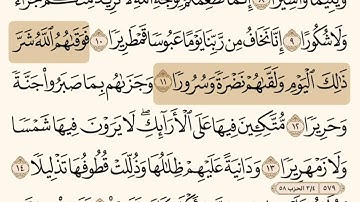 وَيَتِيمًا وَأَسِيرًا ٨ إِنَّمَا نُطْعِمُكُمْ لِوَجْهِ ٱللَّهِ لَا نُرِيدُ مِنكُمْ جَزَآءً
وَلَا شُكُورًا ٩ إِنَّا نَخَافُ مِن رَّبِّنَا يَوْمًا عَبُوسًا قَمْطَرِيرًا ١٠ فَوَقَىٰهُمُ ٱللَّهُ شَرَّ
ذَٰلِكَ ٱلْيَوْمِ وَلَقَّىٰهُمْ نَضْرَةً وَسُرُورًا ١١ وَجَزَىٰهُم بِمَا صَبَرُوا۟ جَنَّةً
وَحَرِيرًا ١٢ مُّتَّكِـِٔينَ فِيهَا عَلَى ٱلْأَرَآئِكِ ۖ لَا يَرَوْنَ فِيهَا شَمْسًا
وَلَا زَمْهَرِيرًا ١٣ وَدَانِيَةً عَلَيْهِمْ ظِلَٰلُهَا وَذُلِّلَتْ قُطُوفُهَا تَذْلِيلًا ١٤
٥٧٩ ٣/٤ الحزب ٥٨